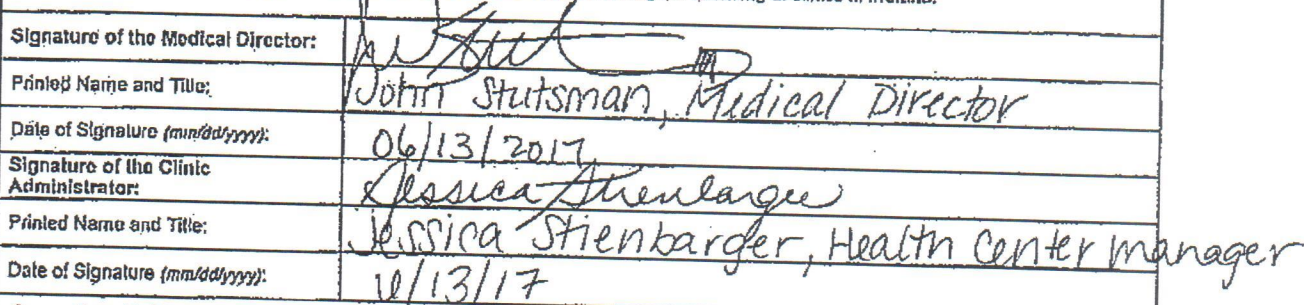 Signature of the Medical Director:
MD
Printed Name and Title: John Stutsman, Medical Director
Date of Signature (mm/dd/yyyy): 06/13/2017
Signature of the Clinic
Administrator: Jessica Stienbarger
Printed Name and Title: Jessica Stienbarger, Health Center Manager
Date of Signature (mm/dd/yyyy): 6/13/17